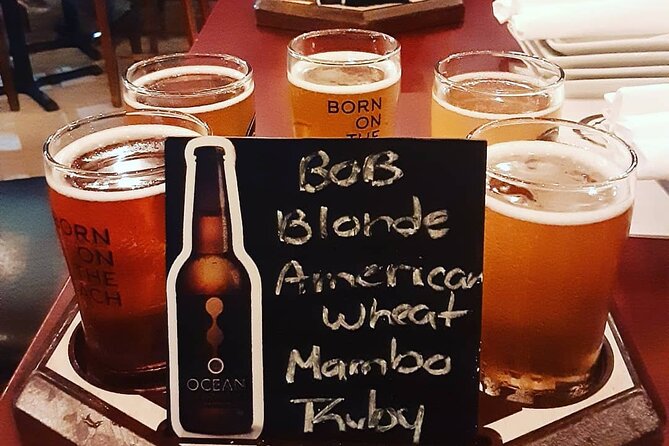 BORN
ON
THE
BORN
ON
THE
ACH
OCEAN
BOB
Blonde
American
wheat
Mambo
Ruby